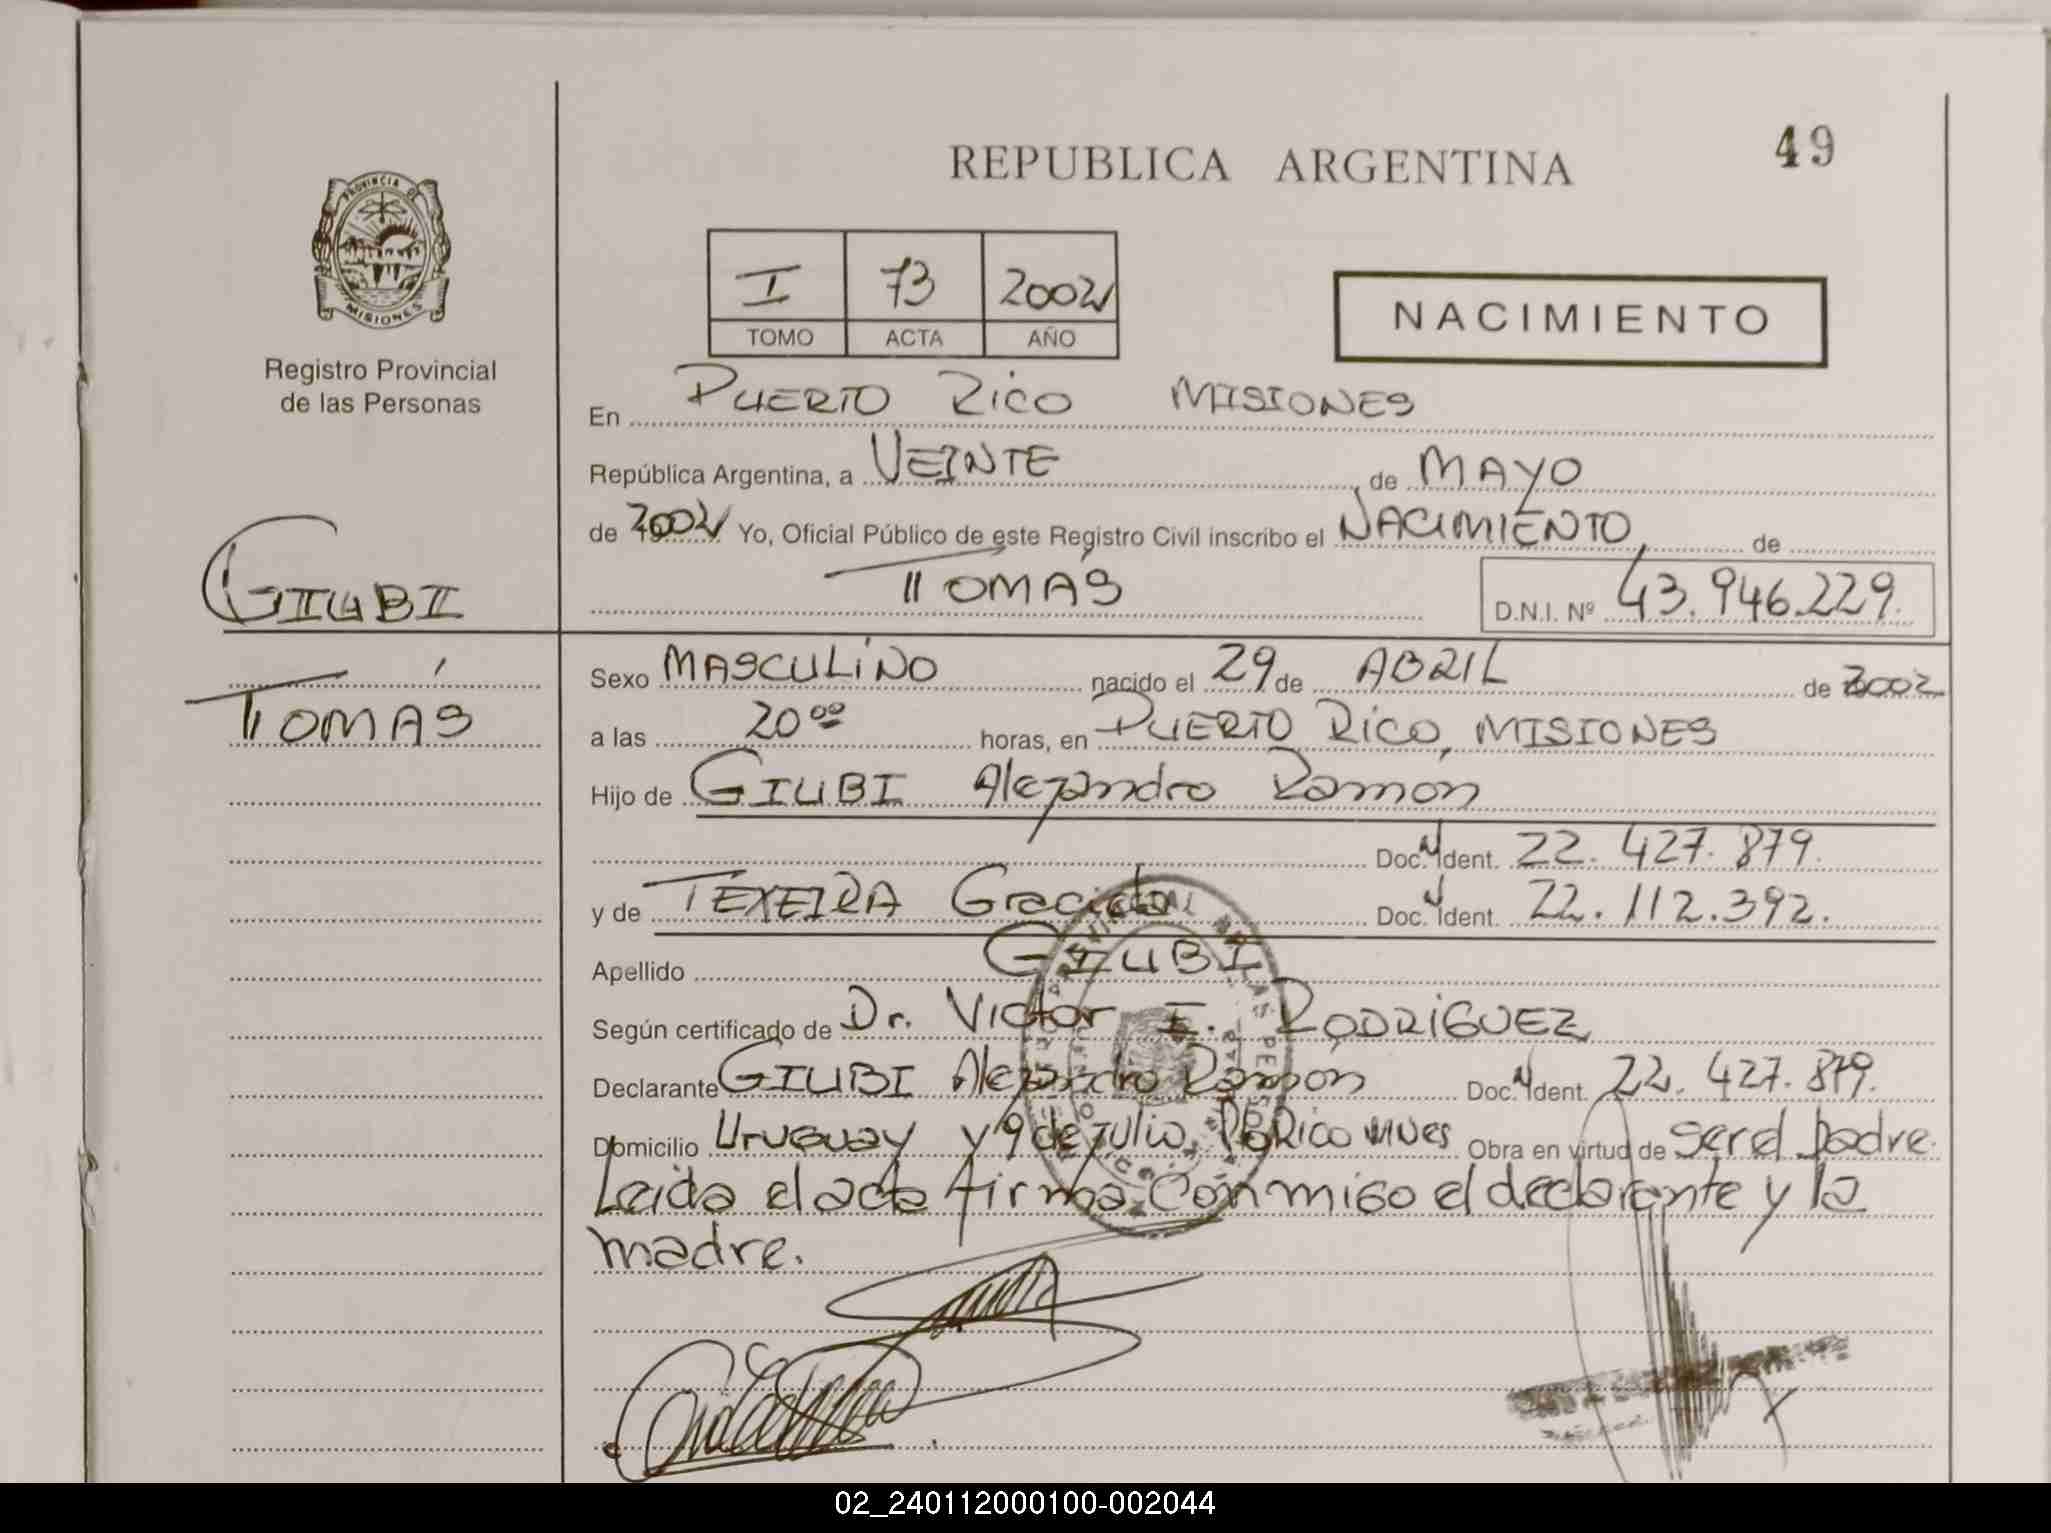 49
REPUBLICA ARGENTINA
PROVINCIA D
MISIONES
Registro Provincial
de las Personas
I 73 2002
TOMO ACTA AÑO
NACIMIENTO
En PUERTO RICO MISIONES
República Argentina, a VEINTE de MAYO
de 2002 Yo, Oficial Público de este Registro Civil inscribo el NACIMIENTO, de
TOMÁS D.N.I. Nº 43.946.229.
GIUBI
TOMÁS
Sexo MASCULINO nacido el 29 de ABRIL de 2002
a las 20 00 horas, en PUERTO RICO, MISIONES
Hijo de GIUBI Alejandro Ramón
Doc. Ident. 22.427.879.
y de TEXEIRA Graciela Doc. Ident. 22.112.392.
Apellido GIUBI
Según certificado de Dr. Victor E. RODRIGUEZ
Declarante GIUBI Alejandro Ramón Doc. Ident. 22.427.879.
Domicilio Uruguay y 9 de Julio, Pto Rico Mnes Obra en virtud de ser el padre.
Leida el acta firma conmigo el declarante y la
madre.
02_240112000100-002044